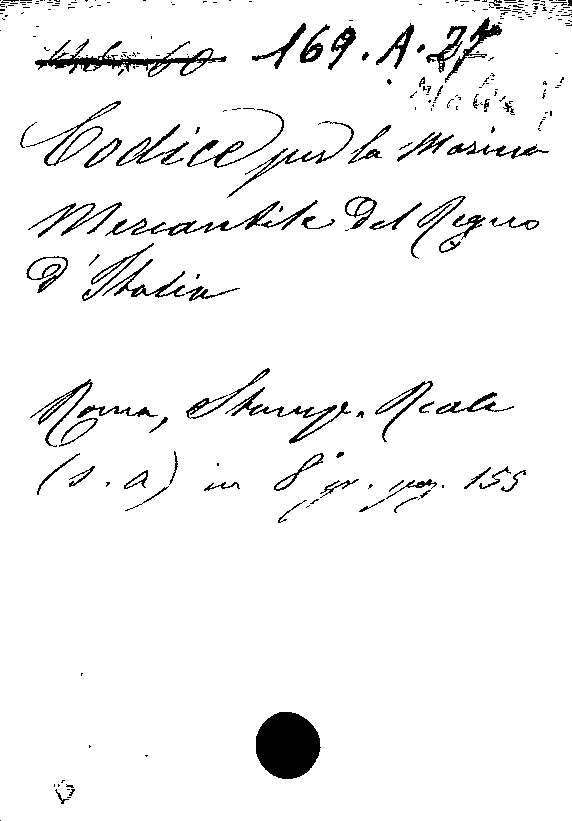 169.A.27
Codice per la Marina
Mercantile del Regno
d'Italia
Roma, Stamp. Reale
(s.a) in 8° gr. pag. 155